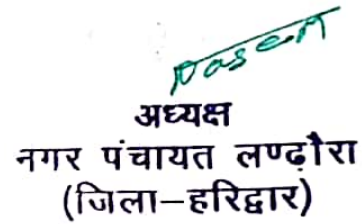 अध्यक्ष
नगर पंचायत लण्ढौरा
(जिला–हरिद्वार)